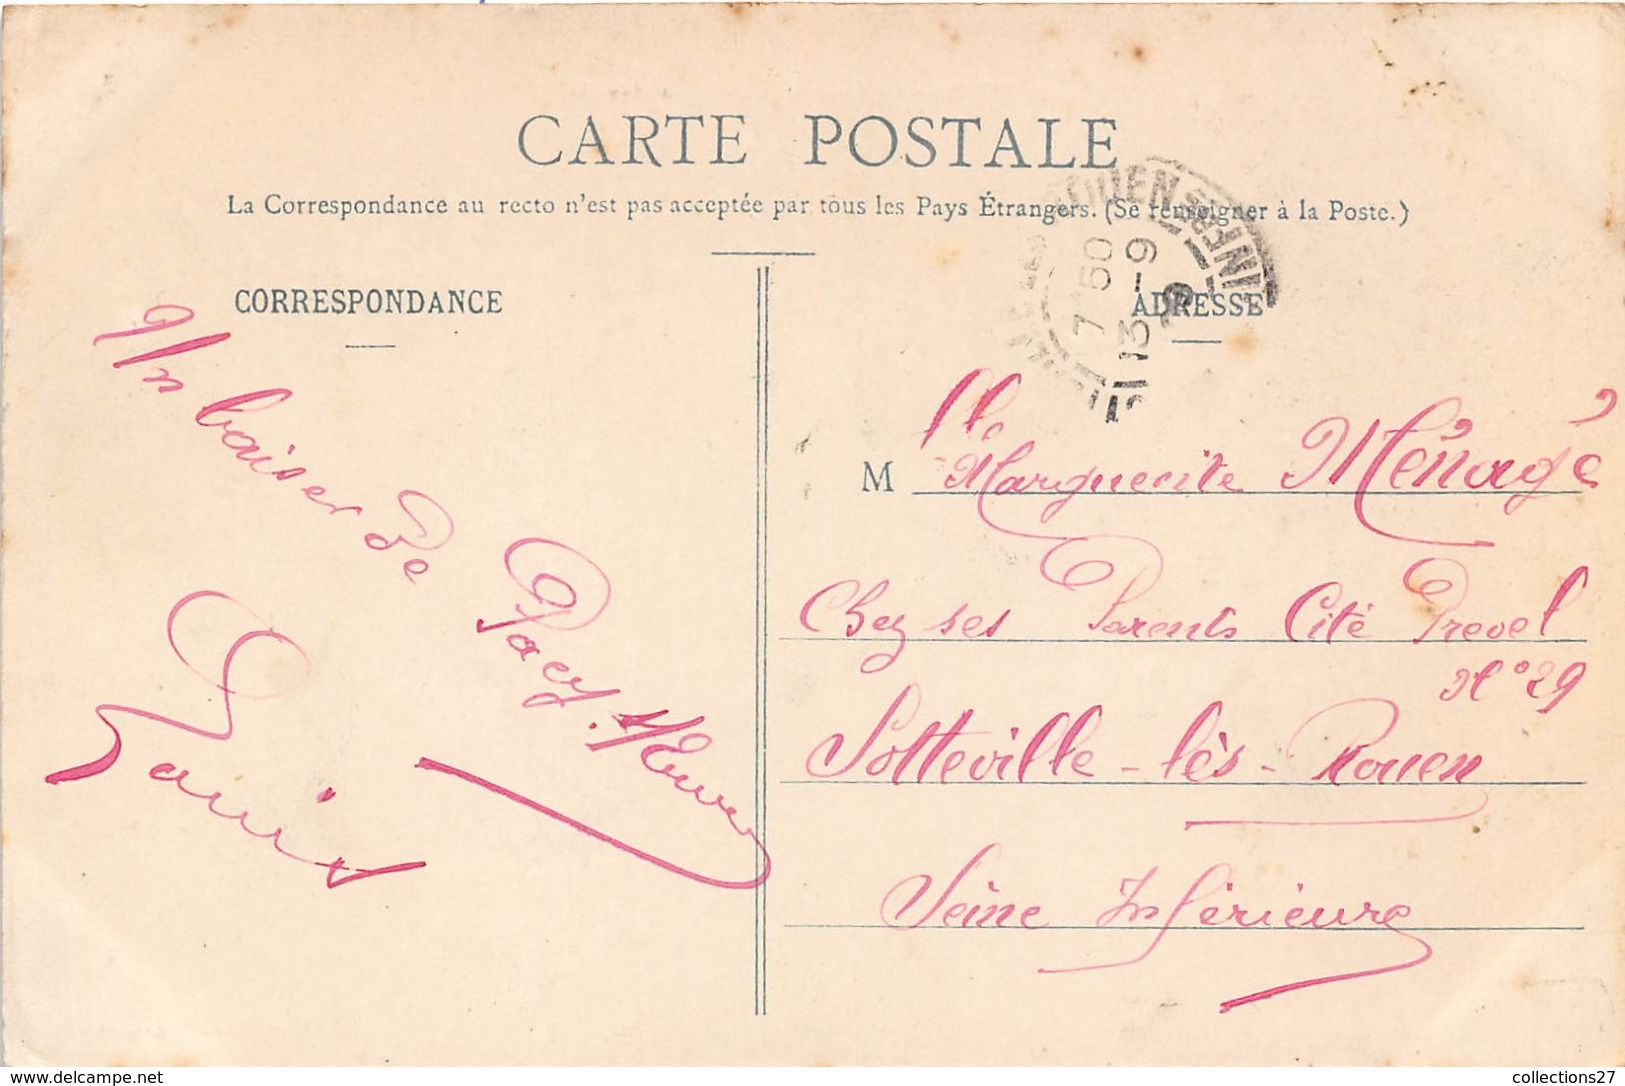 CARTE POSTALE
La Correspondance au recto n'est pas acceptée par tous les Pays Étrangers. (Se renseigner à la Poste.)
CORRESPONDANCE
Un baiser de
Pacy s/Eure
ADRESSE
M lle Marguerite Ménage
Chez ses Parents Cité Prevel
N° 29
Sotteville-lès-Rouen
Seine Inférieure
7 50
13 - 9
www.delcampe.net
collections27